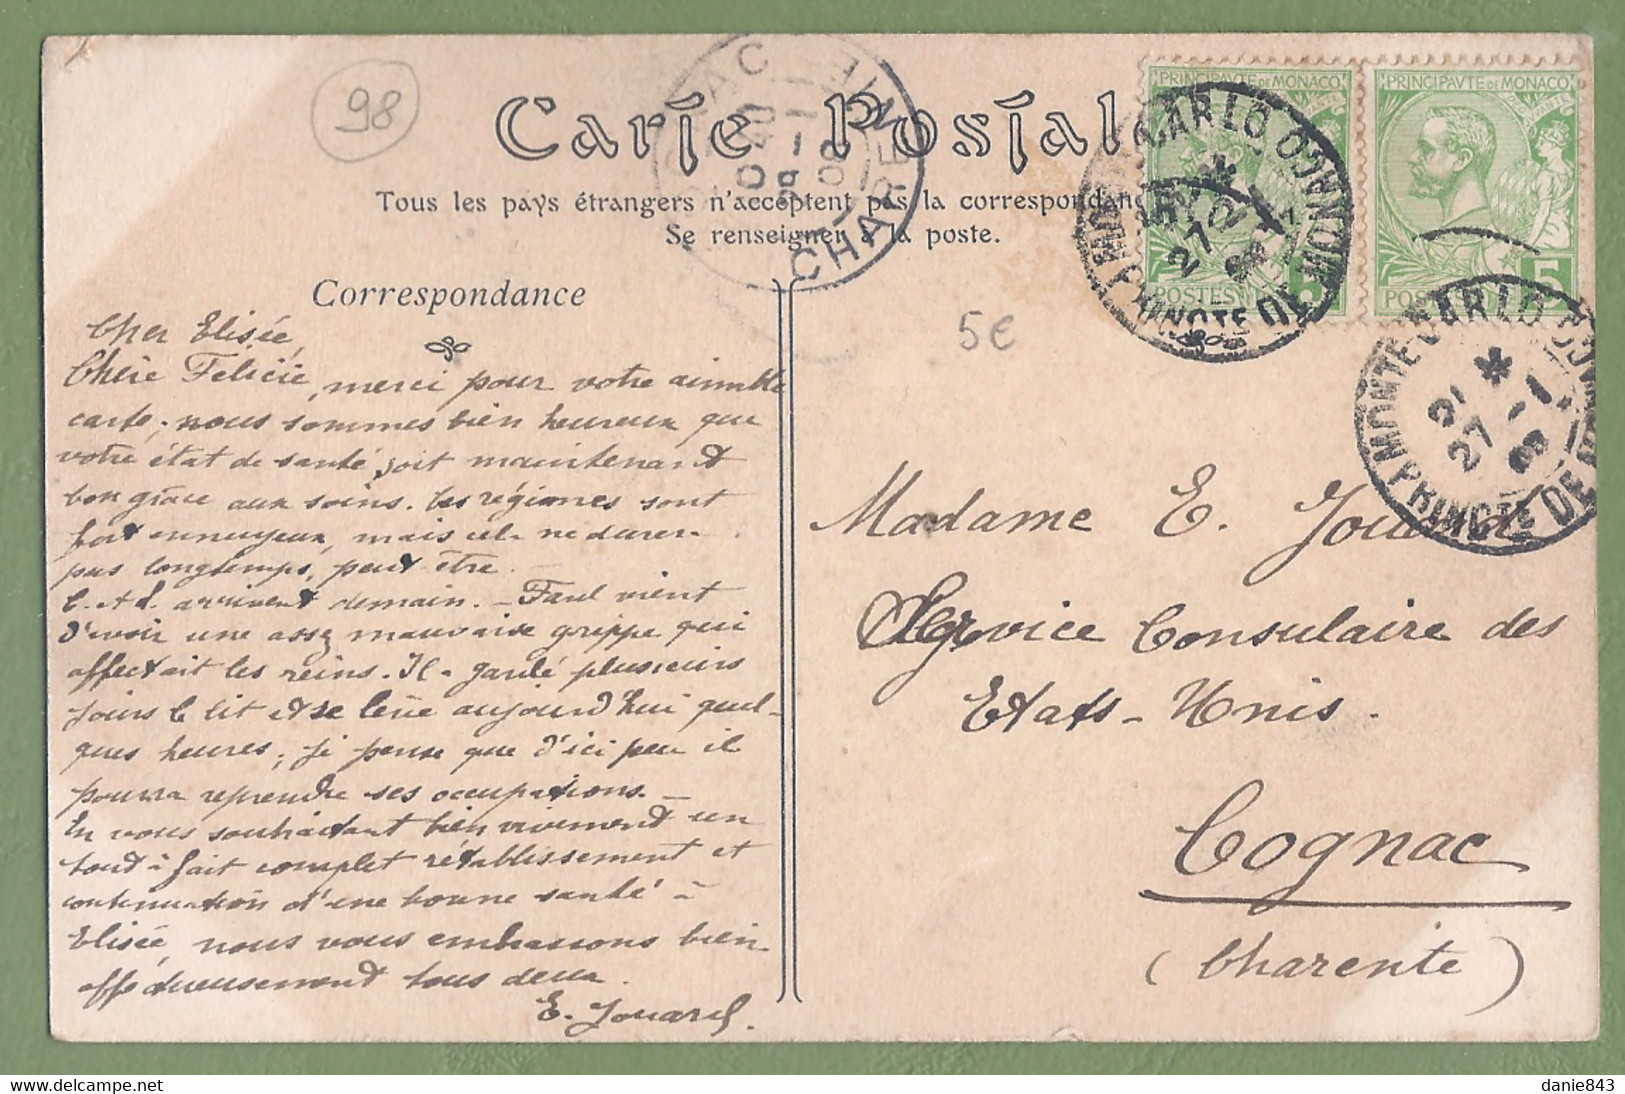 98
Carte Postale
Tous les pays étrangers n'acceptent pas la correspondan
Se renseigner à la poste.
Correspondance
Cher Elisée,
Chère Félicie, merci pour votre aimable
carte; nous sommes bien heureux que
votre état de santé soit maintenant
bon grâce aux soins. Les régimes sont
fort ennuyeux, mais cela ne durera
pas longtemps, peut être.
C. et L. arrivent demain. – Paul vient
d'avoir une assez mauvaise grippe qui
affectait les reins. Il a gardé plusieurs
jours le lit et se lève aujourd'hui quel-
ques heures; je pense que d'ici peu il
pourra reprendre ses occupations. –
En vous souhaitant bien vivement un
tout à fait complet rétablissement et
continuation d'une bonne santé à
Elisée, nous vous embrassons bien
affectueusement tous deux.
E. Jouard.
PRINCIPAVTE DE MONACO
POSTES
5
PRINCIPAVTE DE MONACO
POSTES
5
MONTE CARLO
PRINCTE DE MONACO
27 -1
08
MONTE CARLO
PRINCTE DE MONACO
27 -1
08
COGNAC
CHARENTE
08
5€
Madame E. Jouard
Service Consulaire des
Etats-Unis.
Cognac
(Charente)
danie843